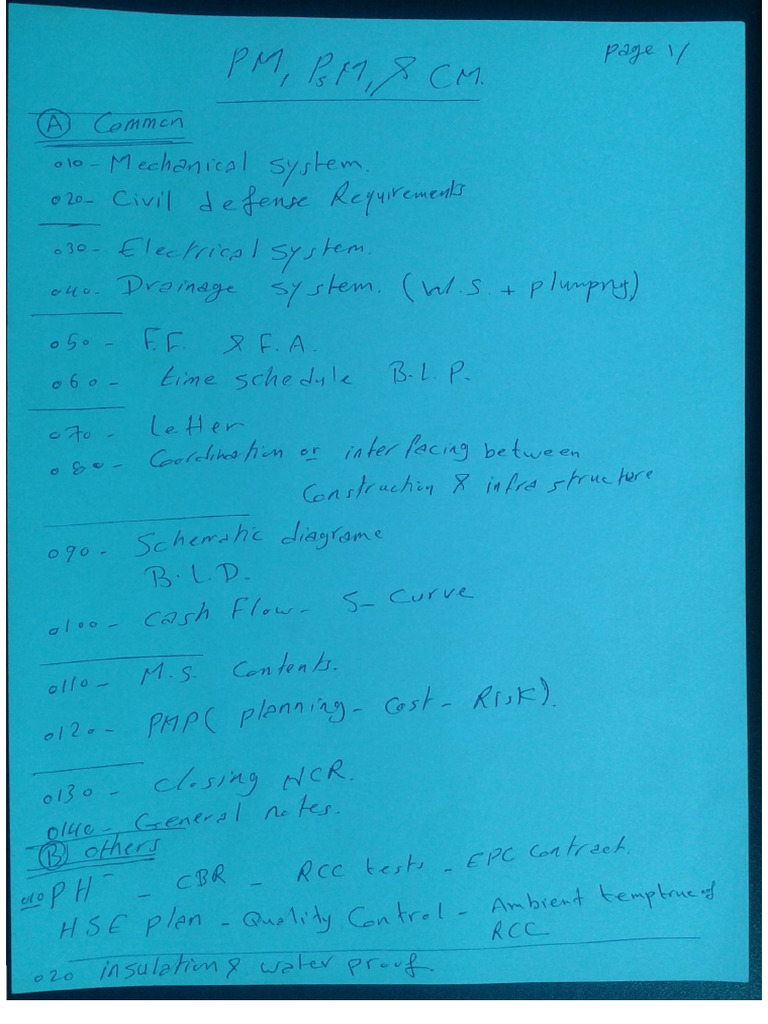 page 1/
PM, PsM, & CM.
A Common
010- Mechanical system.
020- Civil defense Requirements
030- Electrical system.
040- Drainage system. (W.S. + plumpng)
050- F.F. & F.A.
060- time schedule B.L.P.
070- Letter
080- Coordination or interfacing between
Construction & infra structure
090- Schematic diagrame
B.L.D.
0100- Cash Flow- S- Curve
0110- M.S. Contents.
0120- PMP( planning- Cost- Risk).
0130- Closing NCR.
0140- General notes.
B others
010 PH - CBR - RCC tests - EPC Contract.
HSE plan - Quality Control - Ambient temptrue of
RCC
020 insulation & water proof.